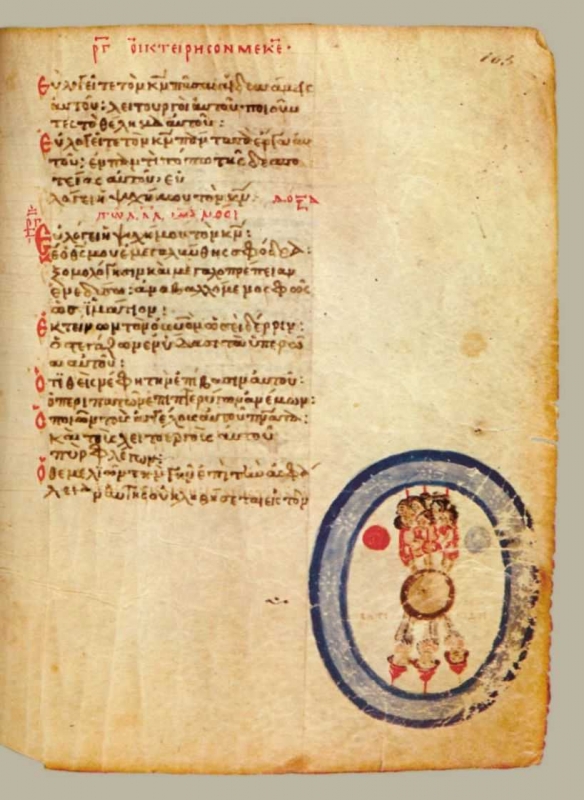 ργ ΟΙΚΤΕΙΡΗCΟΝ ΜΕ ΚΕ·
103
Εὐλογεῖτε τὸν κν πᾶσαι αἱ δυνάμεις
αὐτοῦ: λειτουργοὶ αὐτοῦ ποιοῦν
τες τὸ θέλημα αὐτοῦ:
Εὐλογεῖτε τὸν κν πάντα τὰ ἔργα αυ
του: ἐν παντὶ τόπω τῆς δεσπο
τείας αὐτοῦ: εὐ
λόγει ἡ ψυχή μου τὸν κν: ΔΟΞΑ
Εὐλόγει ἡ ψυχή μου τὸν κν:
μου ἐμεγαλύνθης σφόδρα:
ξομολόγησιν καὶ μεγαλοπρέπειαν
ἐνεδύσω: ἀναβαλλόμενος φῶς
ὡς ἱμάτιον:
Ἐκτείνων τὸν οὐνον ὡσεὶ δέρριν:
ὁ στεγάζων ἐν ὕδασι τὰ ὑπερῶ
α αὐτοῦ:
Ὁ τιθεὶς νέφη τὴν ἐπίβασιν αὐτοῦ:
ὁ περιπατῶν ἐπὶ πτερύγων ἀνέμων:
Ὁ ποιῶν τοὺς ἀγγέλους αὐτοῦ πνατα:
καὶ τοὺς λειτουργοὺς αὐτοῦ
πῦρ φλέγον:
Ὁ θεμελιῶν τὴν γῆν ἐπὶ τὴν ἀσφά
λειαν οὐ κλιθήσεται εἰς τὸν